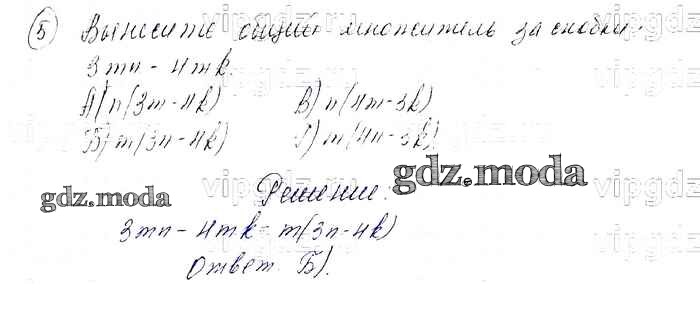 5) Вынесите общий множитель за скобки.
3mn - 4mk.
А) n(3m-4k) В) n(4m-3k)
Б) m(3n-4k) Г) m(4n-3k)
gdz.moda
Решение:
gdz.moda
3mn - 4mk = m(3n-4k)
Ответ. Б).
vipgdz